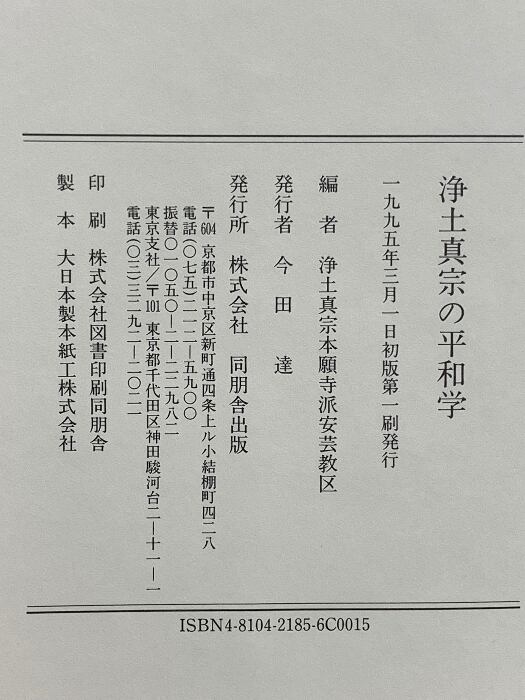 浄土真宗の平和学
一九九五年三月一日初版第一刷発行
編　者　浄土真宗本願寺派安芸教区
発行者　今　田　達
発行所　株式会社　同朋舎出版
〒604 京都市中京区新町通四条上ル小結棚町四二八
電話(〇七五)二一二―五九〇〇
振替〇一〇五〇―二―二二九八二
東京支社／〒101 東京都千代田区神田駿河台二―十一―一
電話(〇三)三二九二―二〇二一
印　刷　株式会社図書印刷同朋舎
製　本　大日本製本紙工株式会社
ISBN4-8104-2185-6C0015